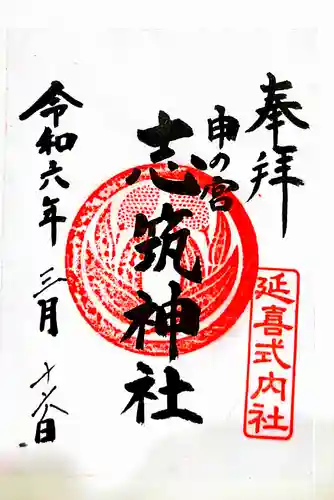 奉拝
申の宮
志筑神社
延喜式内社
令和六年 三月 十八日